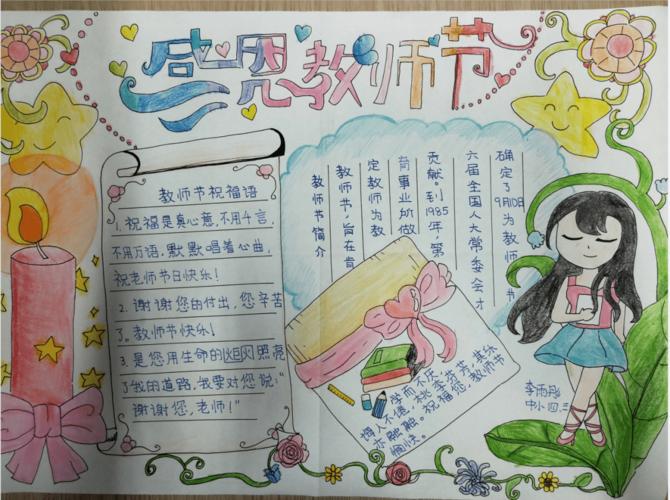 感恩教师节
教师节祝福语
1. 祝福是真心意,不用千言,
不用万语,默默唱着心曲,
祝老师节日快乐!
2. 谢谢您的付出,您辛苦
了。教师节快乐!
3. 是您用生命的火炬照亮
了我的道路,我要对您说:“
谢谢您,老师!”
教师节简介
教师节,旨在肯
定教师为教
育事业所做
贡献。到1985年,第
六届全国人大常委会才
确定了9月10日为教师节
学而不厌
诲人不倦,桃李芬芳,其乐
亦融融。祝福您,教师节
愉快。
中小四.三